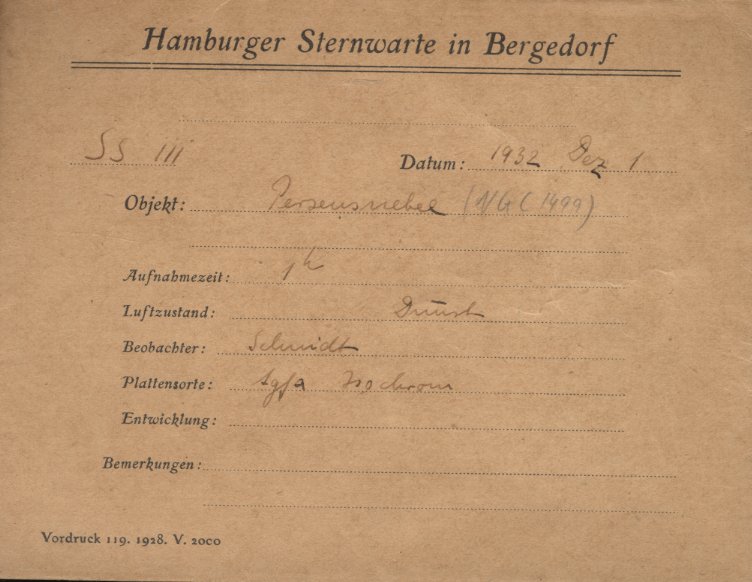 Hamburger Sternwarte in Bergedorf
SS III
Datum: 1932 Dez 1
Objekt: Perseusnebel (NGC 1499)
Aufnahmezeit: 1h
Luftzustand: Dunst
Beobachter: Schmidt
Plattensorte: Agfa Isochrom
Entwicklung:
Bemerkungen:
Vordruck 119. 1928. V. 2000